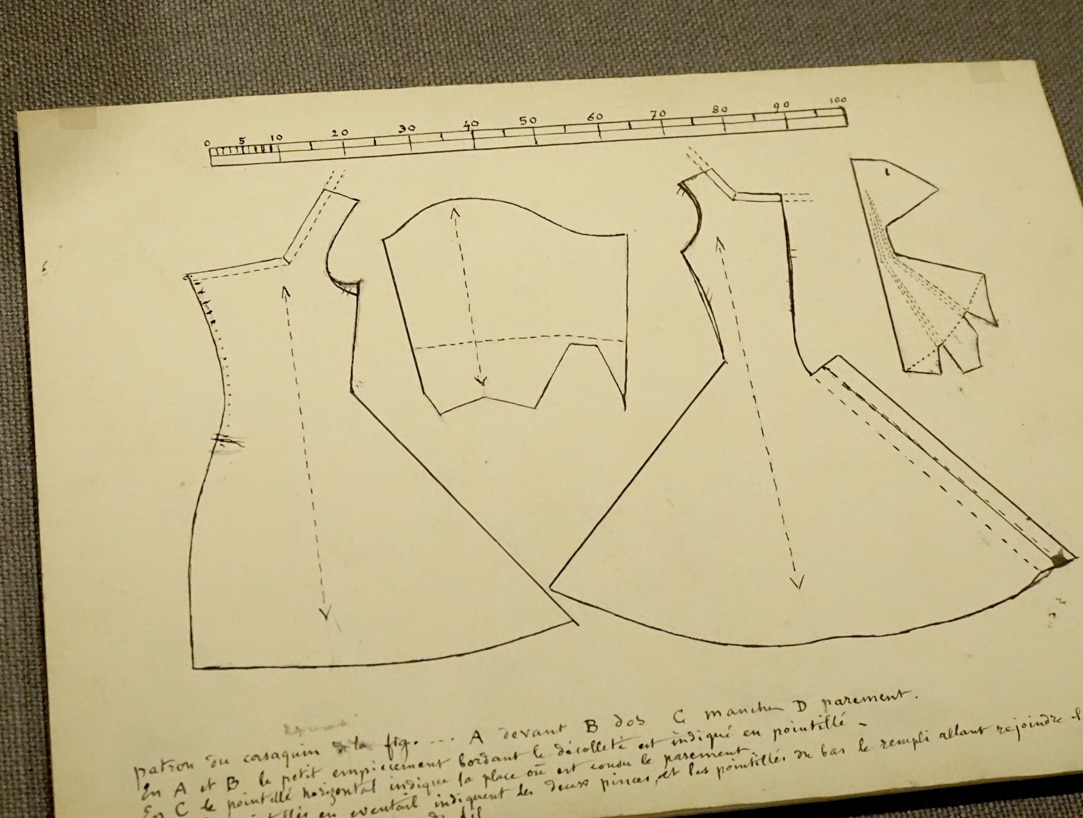 0 5 10 20 30 40 50 60 70 80 90 100
patron du corsaquin de la fig. ... A devant B dos C manche D parement.
En A et B le petit empiecement bordant le décolleté est indiqué en pointillé -
En C le pointillé horizontal indique la place où est cousu le parement
en eventail indiquent les deux pinces, et les pointillés du bas le rempli allant rejoindre